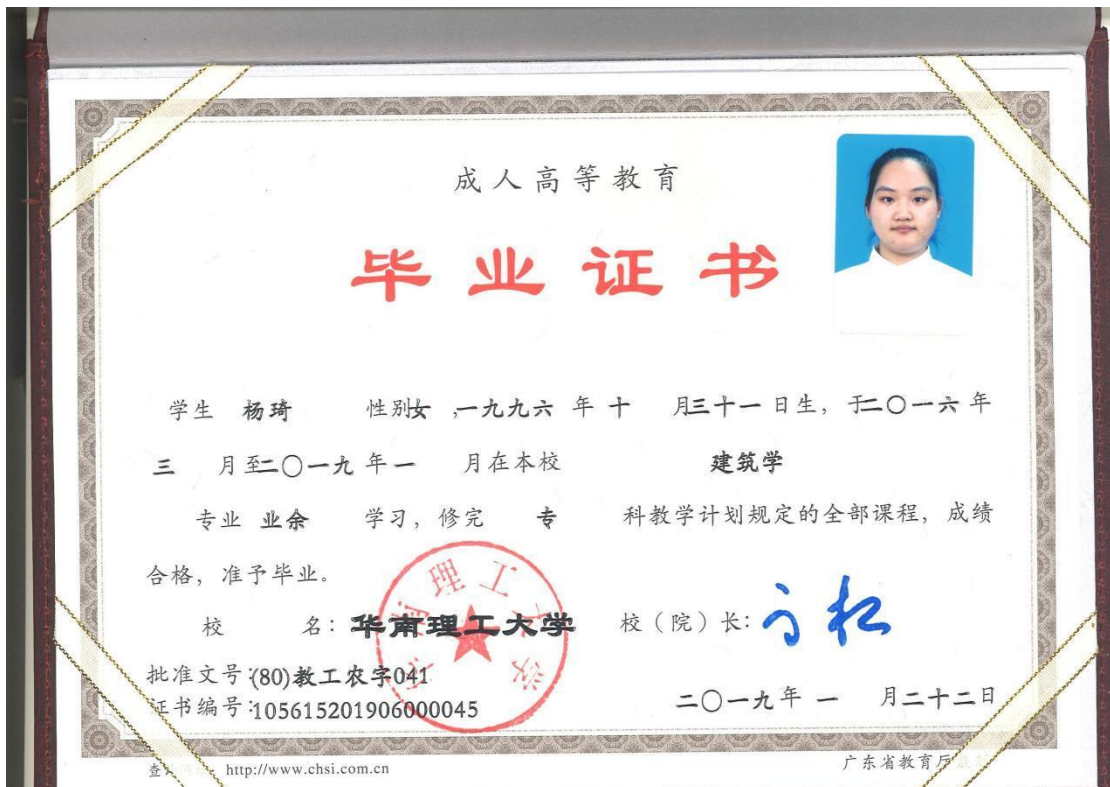 成人高等教育
毕业证书
学生 杨琦 性别女,一九九六 年 十 月三十一 日生,于二〇一六 年
三 月至二〇一九 年 一 月在本校 建筑学
专业 业余 学习,修完 专 科教学计划规定的全部课程,成绩
合格,准予毕业。
华南理工大学
校 名:华南理工大学 校(院)长:
批准文号:(80)教工农字041
证书编号:105615201906000045
二〇一九 年 一 月二十二日
查 http://www.chsi.com.cn 广东省教育厅